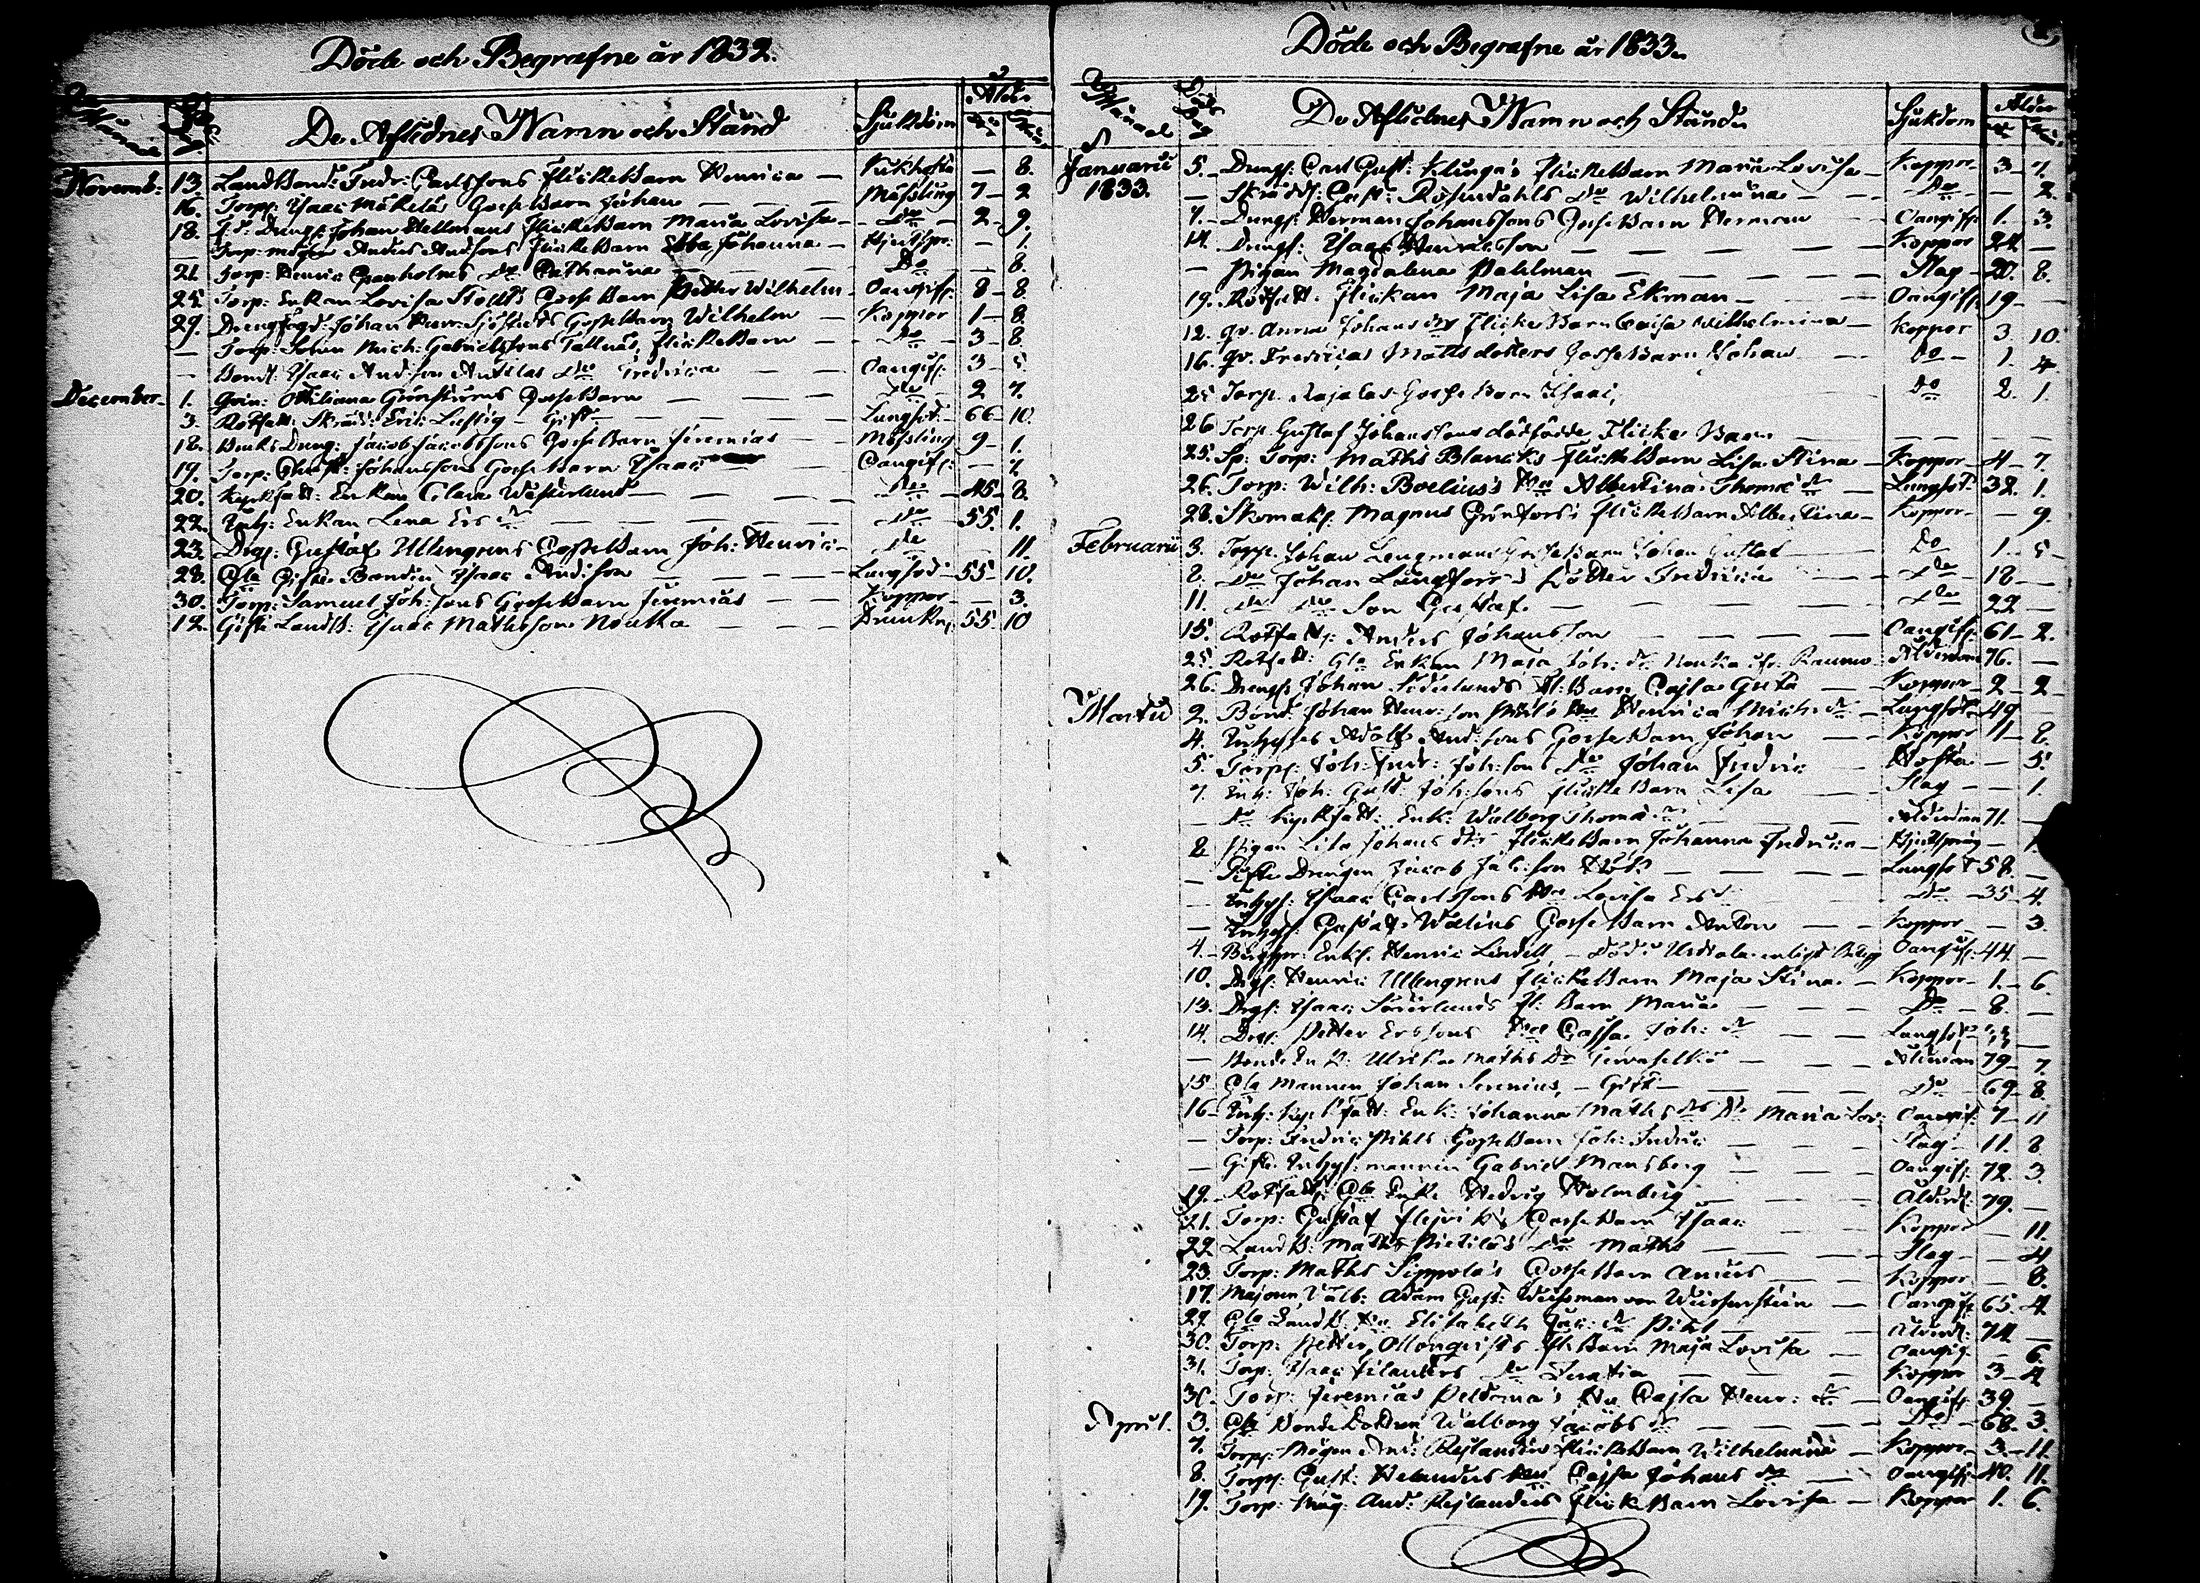 Döde och Begrafne år 1832.
De Aflidnes Namn och Stånd Sjukdom Ålder
Novemb: 13. Landbond: Fredr: Carlssons Flickebarn Henrica — Kikhosta — 8.
16. Torp: Isaac Mäkeläs Gossebarn Johan — Mässling 7 — 2
18. Dräng: Johan Hellmans Flickebarn Maria Lovisa — Do — 2 — 9.
— Torp: mågen Anders Andssons Flickebarn Ebba Johanna — — 1.
21. Torp: Henric Granholms Do Catharina — Do — 8.
25. Torp: Enkan Lovisa Gossebarn Petter Wilhelm — Oangif: 8 — 8.
29. Johan Gossebarn Wilhelm — Koppor 1 — 8
— Torp: Sonen Mich: Gabrielssons Tallnäs, Flickebarn — Do — 3 — 8
— Bond: Isaac Andsson Anttilas Do Fredrica — Oangif: 3 — 5.
December. 1. Gossebarn — Do 2 7.
3. Rotfatt: Skräd: Eric Lustig — Gift — Lungsot: 66 — 10.
18. Bruks Dräng: Jacob Jacobssons Gossebarn Jeremias — Mässling 9 — 1.
19. Torp: Johanssons Gossebarn Isaac — Oangif: — 7.
20. Kyrkfatt: Enkan Clara Westerlund — Do — 45 — 8.
22. Inh: Enkan Lena Ers dr — Do — 55. 1.
23. Drgs: Gustaf Ullengrens Gossebarn Joh: Henric — Do — 11.
28. Gla Gifte Bonden Isaac Andsson — Lungsot — 55 — 10.
30. Torp: Samuel Joh:sons Gossebarn Jeremias — Koppor — 3.
12. Gifte Landb: Isaac Mathsson Noukka — Drunkn: 55. 10
Döde och Begrafne år 1833.
De Aflidnes Namn och Stånd Sjukdom Ålder
Januarii 1833. 5. Drängs: Carl Gust: Klinga's Flickebarn Maria Lovisa — Koppor 3 — 7.
— Skrädd: Gust: Rosendahls Do Wilhelmina — Do — 2.
7. Drängs: Herman Johanssons Gossebarn Herman — Oangif: 1. 3.
14. Drängs: Isaac Henricsson — Koppor 24. —
— Pigan Magdalena Pahlman — Slag — 20. 8.
19. Rotfatt: Flickan Maja Lisa Ekman — Oangif: 19 —
12. Qv. Anna Johans drs Flickebarn Cajsa Wilhelmina — Koppor 3. 10.
16. Qv. Fredricas Matts dotters Gossebarn Johan — Do — 1. 4.
25. Torp. Rajalas Gossebarn Isaac, Do 2. 1.
26 Torp. Gustaf Johanssons dödfödde Flicke Barn —
25. Torp: Maths Blancks Flickebarn Lisa Stina — Koppor 4 — 7.
26. Torp: Wilh: Boelius's Hu Albertina Thomæ dr — Lungsot 32. 1.
28. Skomak: Magnus Grönfors's Flickebarn Albertina — Koppor — 9.
Februarii 3. Torp: Johan Lengmans Gossebarn Johan Gustaf — Do 1. 5 —
8. Do Johan Långfors's Dotter Fredrica — Do — 18 —
11. Do Do Son Gustaf. — Do — 22 —
15. Rotfatt: Anders Johansson — Oangif: 61 — 2.
25. Rotfatt: Gla Enkan Maja Joh: dr Noukka — Ålderdom 76. —
26. Drängs Johan Söderlunds Fl: Barn Cajsa Greta — Koppor — 2 — 2
Martii 2. Bond: Johan Henr:son Hu Henrica Mich: dr — Lungsot — 49
4. Inhyses Adolf And:sons Gossebarn Johan — Koppor 11 — 8.
5. Torp: Joh: Fredr: Joh:sons Do Johan Fredric — Hosta — 5
7. Inh: Joh: Gust: Joh:sons Flickebarn Lisa — Slag — 1.
— Do Kyrkfatt: Enk: Walborg Thomæ dr — Ålderdom 71. —
8 Pigan Lisa Johans drs Flickebarn Johanna Fredrica — — 1.
— Gifte Drängen Jacob Jac:son — Lungsot 58. —
— Inhys: Isaac Carlssons Hu Lovisa Ers dr — Do — 35. 4.
— Inhys: Gustaf Walins Gossebarn Anton — Koppor — 3.
4. Enkl. Henric Lindell, — Död i Urdiala enligt — Oangif: 44. —
10. Drgs: Henric Ullengrens Flickebarn Maja Stina — Koppor — 1. 6.
13. Drgs: Isaac Söderlunds Fl: Barn Maria — Do — 8. —
14. Drgs: Petter Erssons Hu Cajsa Joh: dr — Lungsot —
— Bonde Enk: Ulrika Maths Dr — Ålderdom 79 — 7.
15 Gla Mannen Johan Serenius, — Gift — Do — 69 — 8.
16 — Inh: Kyrkfatt: Enk: Johanna Maths drs Dr Maria Lov: Oangif: 7 — 11
— Torp: Fredric Pihls Gossebarn Joh: Fredric — Slag 11. 8
— Gifte Inhys: mannen Gabriel Mansberg — Oangif: 72. 3.
19. Rotfatt: Gla Enk: Hedvig Holmberg — Ålderd: 79. —
21. Torp: Gustaf Gossebarn Isaac — Koppor — 11.
22. Landb: Maths Pietilä's Do Maths — Slag — 4
23. Torp: Maths Sippola's Gossebarn Anders — Koppor — 8.
17. Majoren Välb: Adam Gust: — Oangif: 65. 4.
27. Gla Landb: Hu Elisabeth Jac: dr Pihl — Ålderd: 74. —
30. Torp: Petter Flickebarn Maja Lovisa — Oangif: — 6.
31. Torp: Isaac Filanders Do Serafia — Koppor 3 — 4
30. Torp: Jeremias Peldoma's Hu Cajsa Henr: dr — Oangif: 39. —
April. 3. Gla Walborg Jacobs dr — Do — 68. 3.
7. Torp: Mågen And: Rejlanders Flickebarn Wilhelmina — Koppor — 3 — 11.
8. Torp: Gust: Helanders Hu Cajsa Johans dr — Oangif: 40. 11.
19. Torp: Måg: And: Rejlanders Flickebarn Lovisa — Koppor 1. 6.